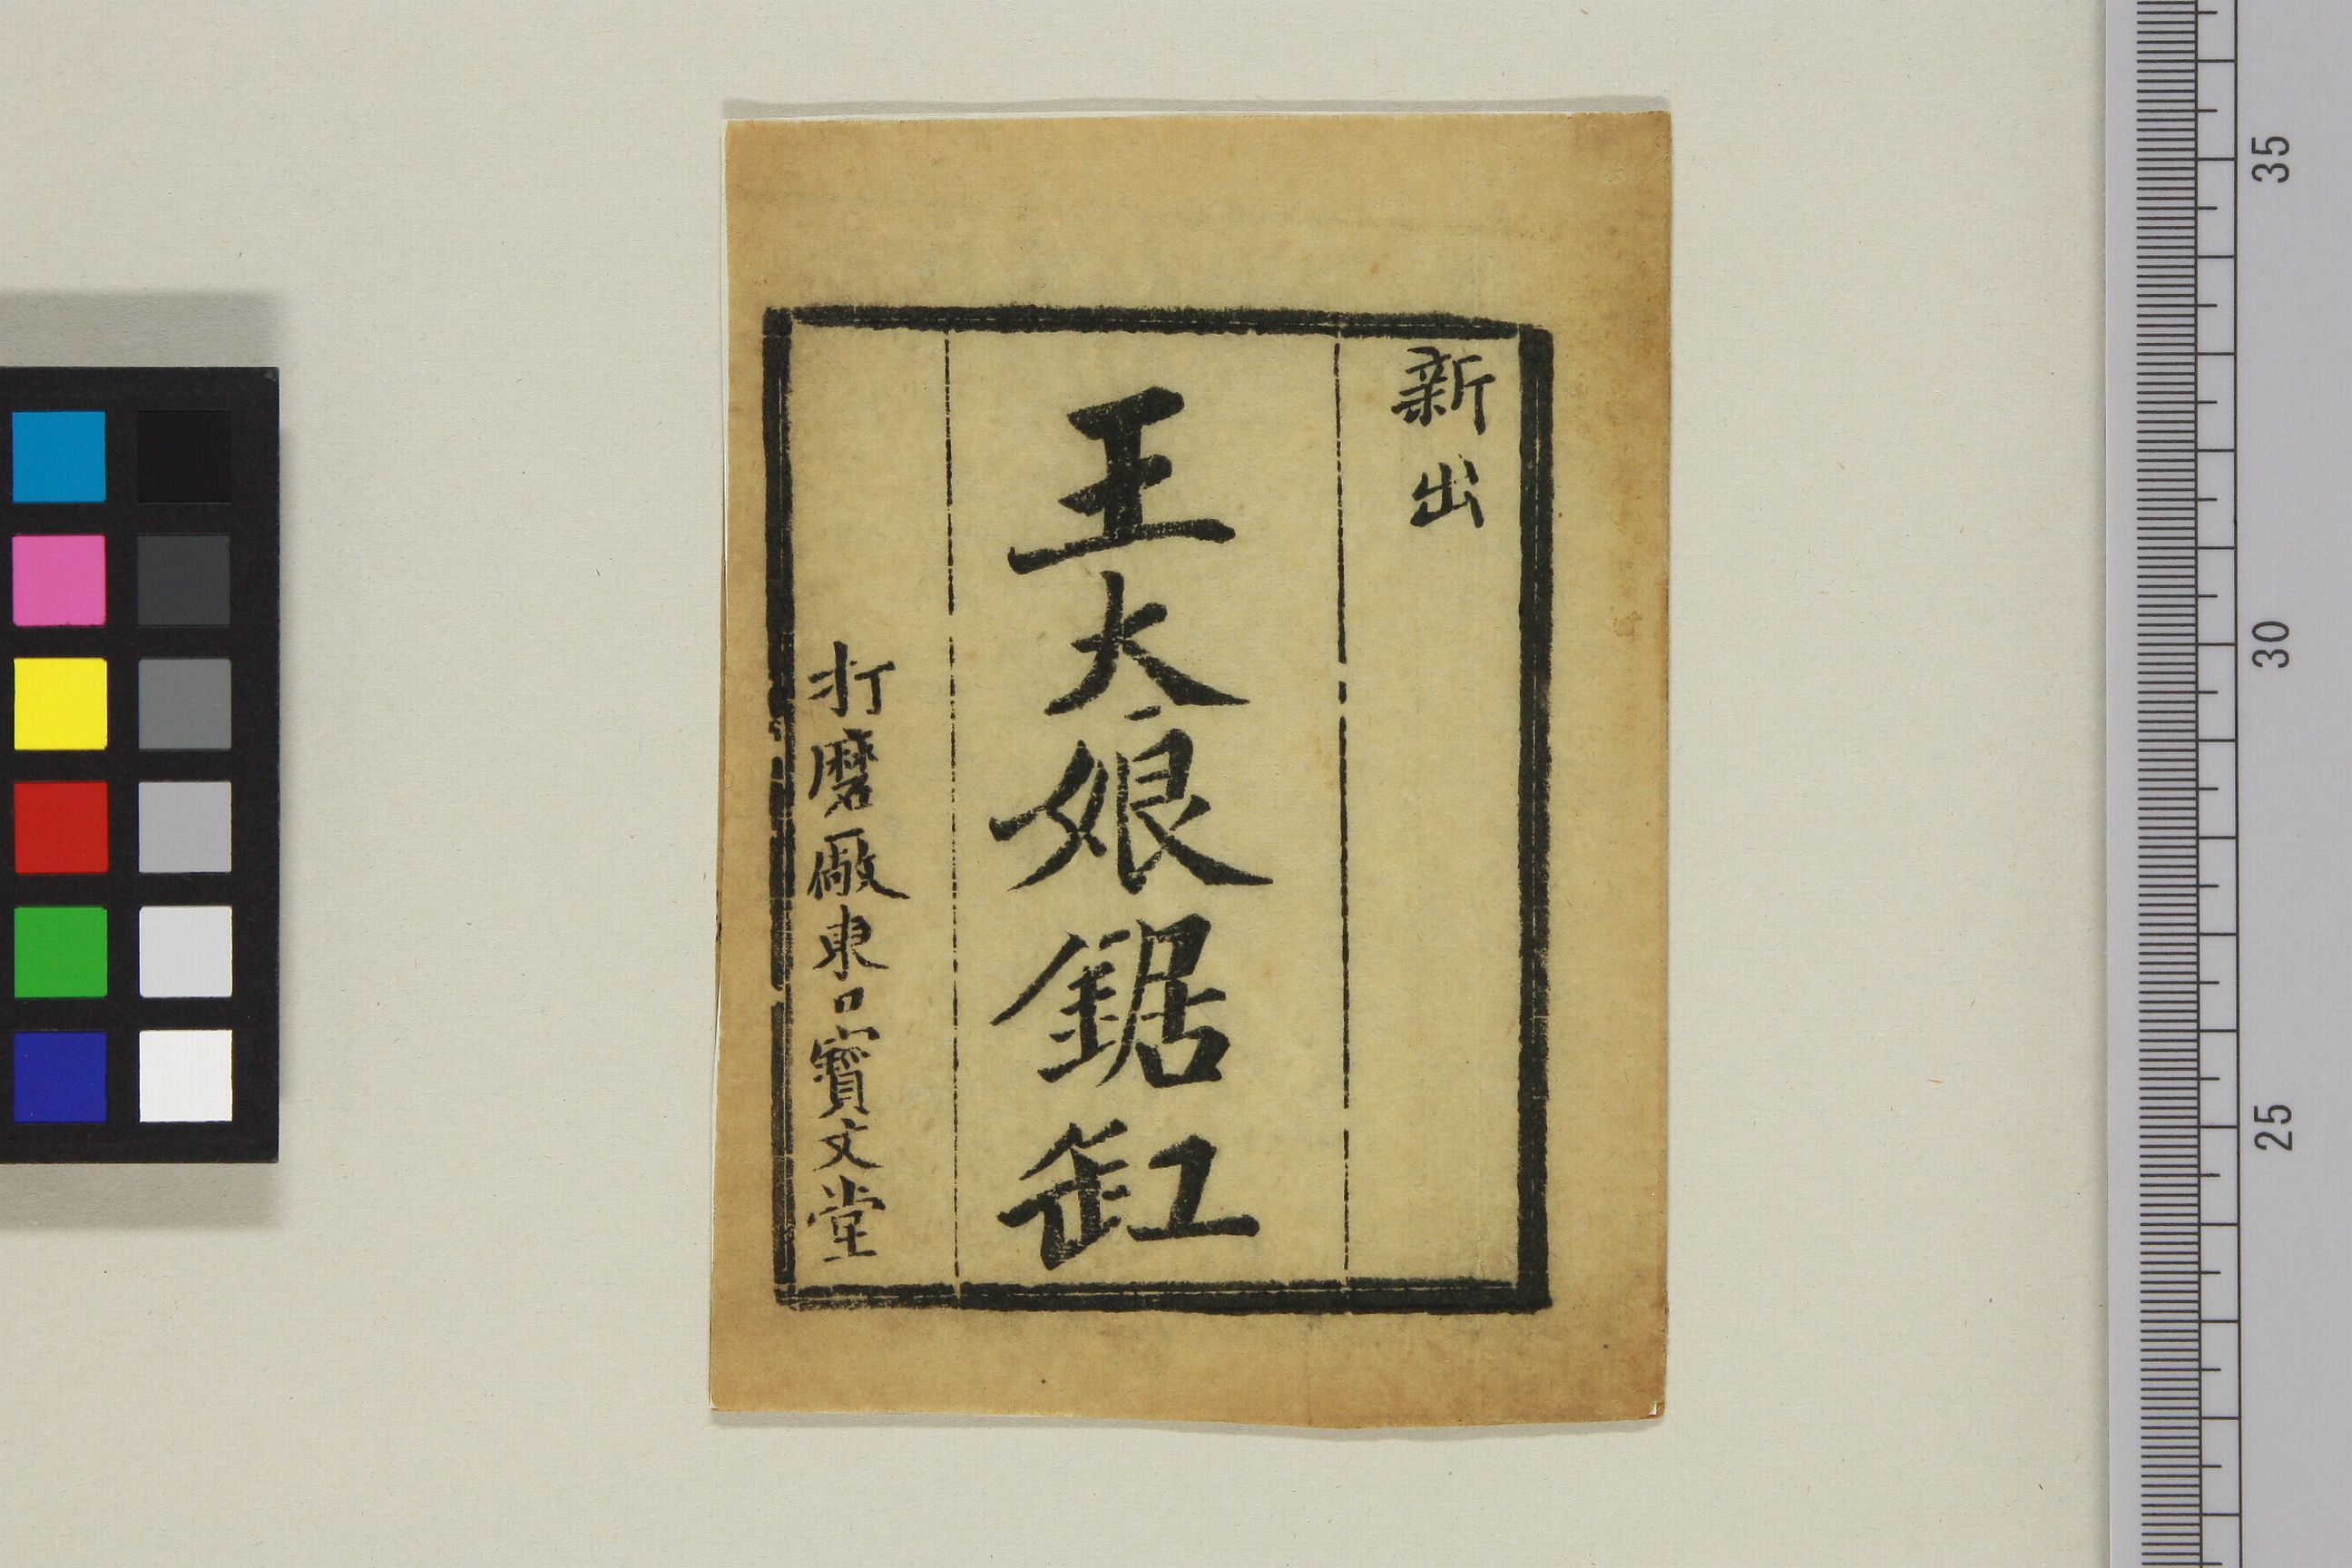 新出
王大娘鋸缸
打磨廠東口寶文堂
35
30
25